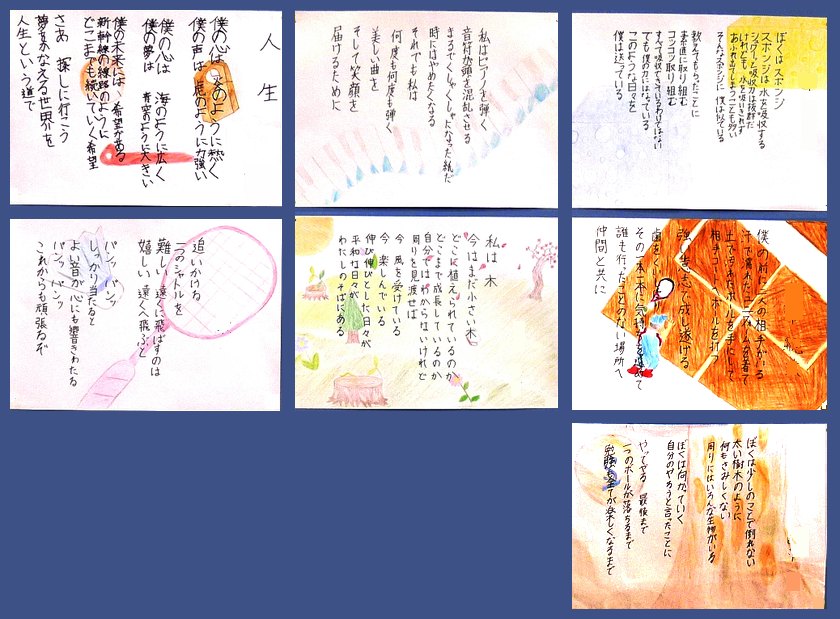 人生
僕の心は 炎のように熱く
僕の声は 虎のように力強い
僕の心は 海のように広く
僕の夢は 青空のように大きい
僕の未来には 希望がある
新幹線の線路のように
どこまでも続いていく希望
さあ 探しに行こう
夢をかなえる世界を
人生という道で
私はピアノを弾く
音符が頭を混乱させる
まるでくしゃくしゃになった紙だ
時にはやめたくなる
それでも私は
何度も何度も弾く
美しい曲を
そして笑顔を
届けるために
ぼくはスポンジ
スポンジは水を吸収する
けれども 水を吸いきれず
あふれ出てしまうことも多い
そんなスポンジに 僕は似ている
教えてもらったことに
素直に取り組む
コツコツ取り組む
すべて吸収できているわけではない
でも 僕の力にはなっている
このような日々を
僕は送っている
追いかける
一つのシャトルを
難しい 遠くに飛ばすのは
嬉しい 遠くへ飛ぶと
パンッ パンッ
しっかり当たると
よい音が心にも響きわたる
パンッ パンッ
これからも頑張るぞ
私は木
今はまだ小さい木
どこに植えられているのか
どこまで成長しているのか
自分ではわからないけれど
周りを見渡せば
今 風を受けている
今 楽しんでいる
伸び伸びとした日々が
平和な日々が
わたしのそばにある
僕の前に二人の相手がいる
汗で濡れたユニフォームを着て
土で汚れたボールを手にして
相手コートへボールを打つ
強い意志で成し遂げる
歯をくいしばり
その一本一本に気持ちを込めて
誰も行ったことのない場所へ
仲間と共に
ぼくは少しのことで倒れない
太い樹木のように
何もさみしくない
周りにはいろんな生物がいる
ぼくは向かっていく
自分のやろうと言ったことに
やってやる 最後まで
一つのボールが落ちるまで
勉強も全てが楽しくなるまで